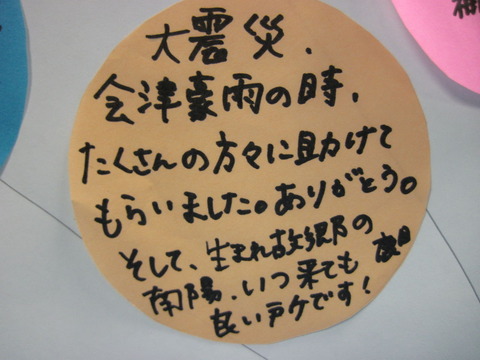 大震災、
会津豪雨の時、
たくさんの方々に助けて
もらいました。ありがとう。
そして、生まれ故郷の
南陽、いつ来ても
良い所です！